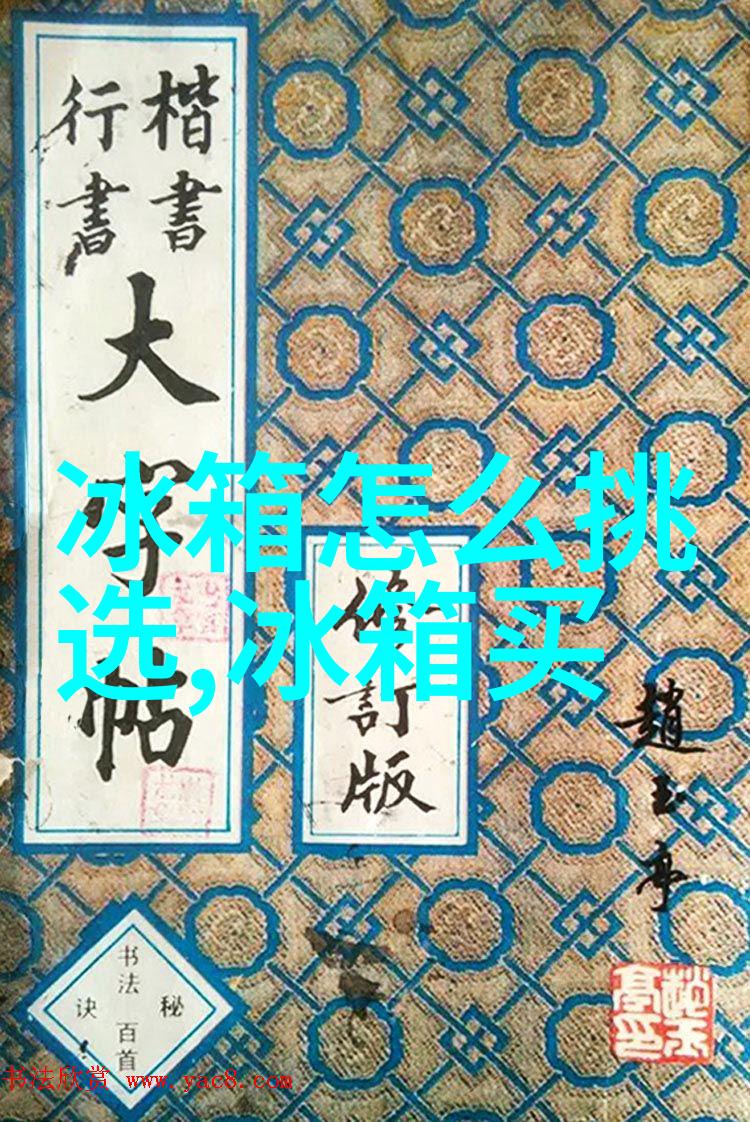 楷書
行書
大字帖
修訂版
冰箱怎么挑
选,冰箱买
趙玉亭
书法
百首
秘
诀
书法欣赏 www.yac8.com